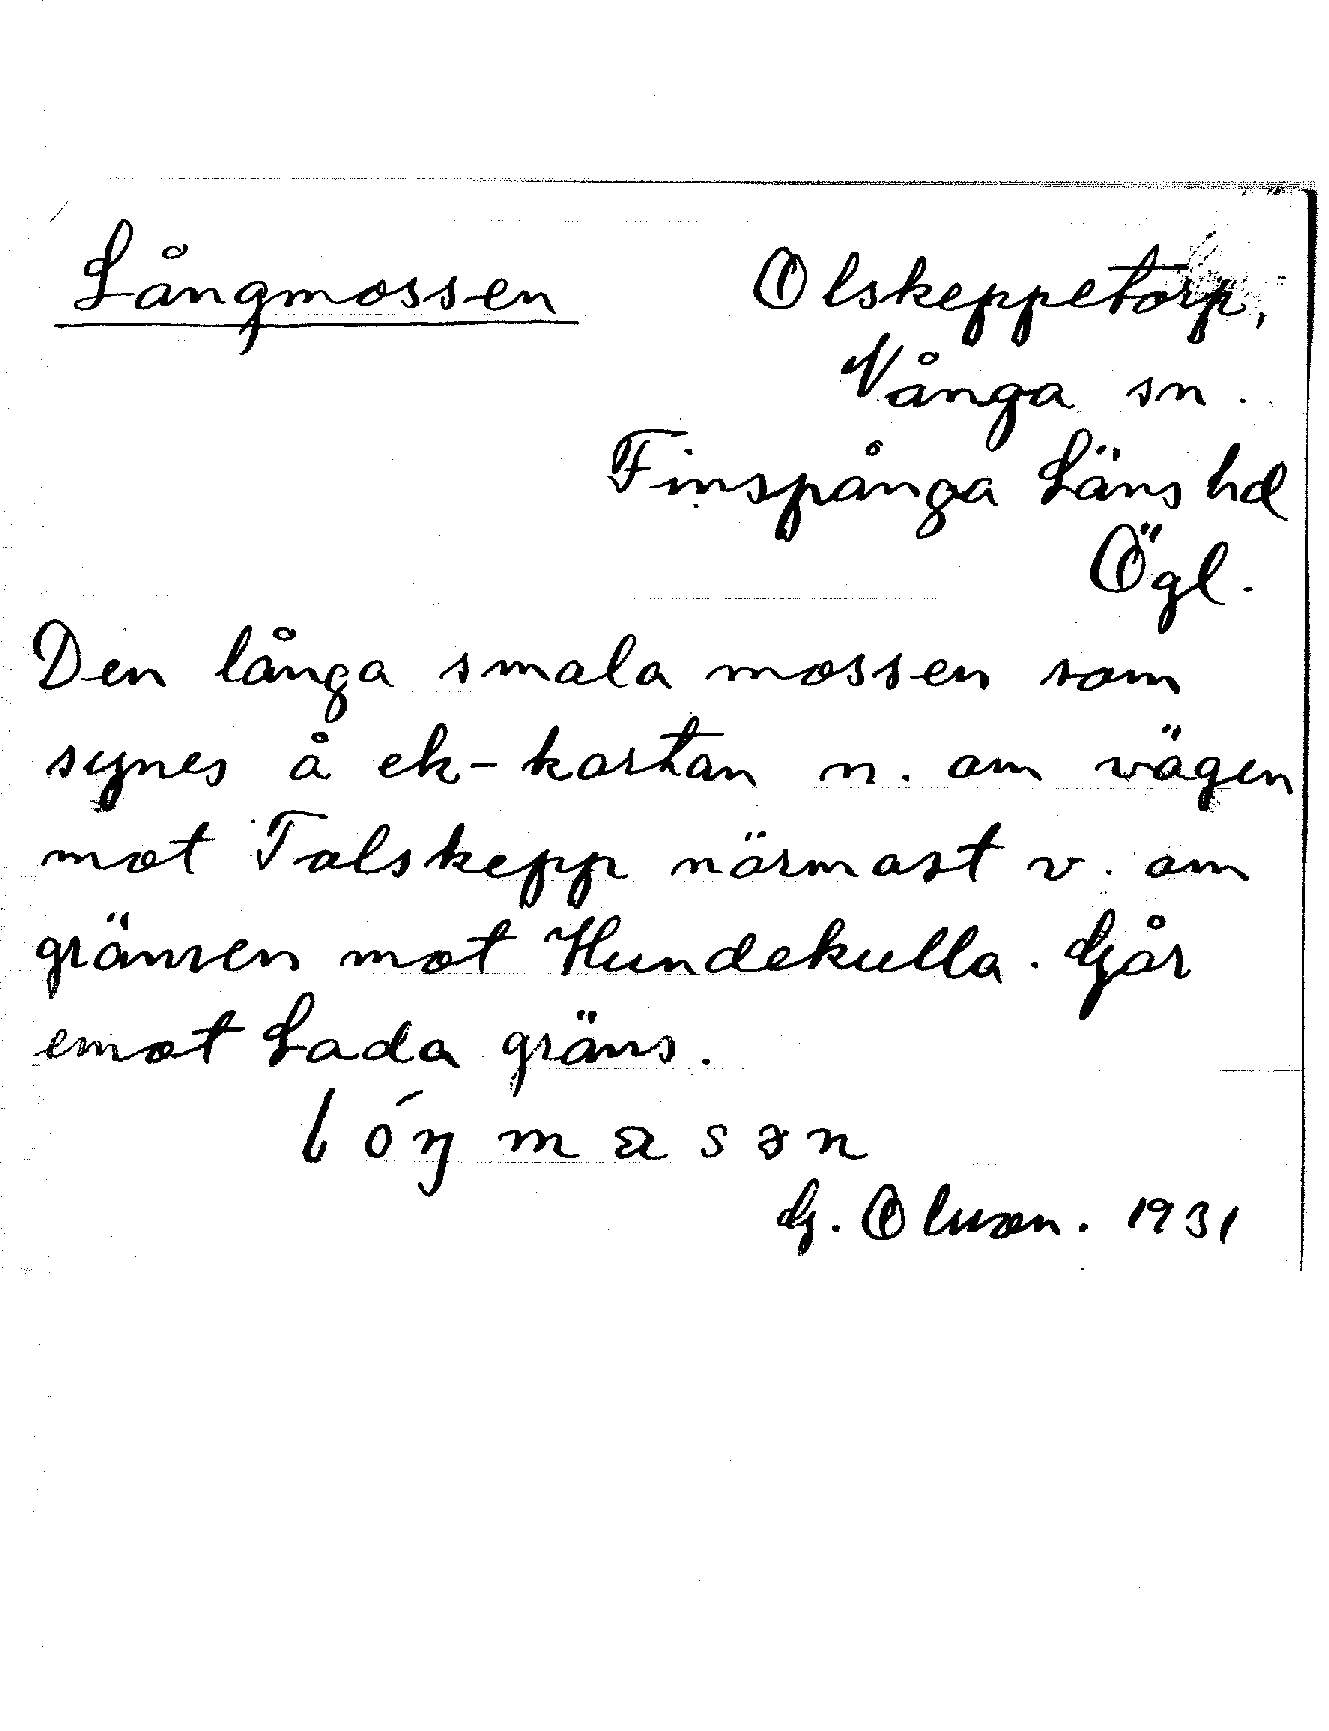 Långmossen
Olskeppetorp,
Vånga sn.
Finspånga Läns hd
Ögl.
Den långa smala mossen som
synes å ek-kartan n. om vägen
mot Talskepp närmast v. om
gränsen mot Hundekulla. Går
emot Lada gräns.
lóŋmasən
G. Olsson. 1931